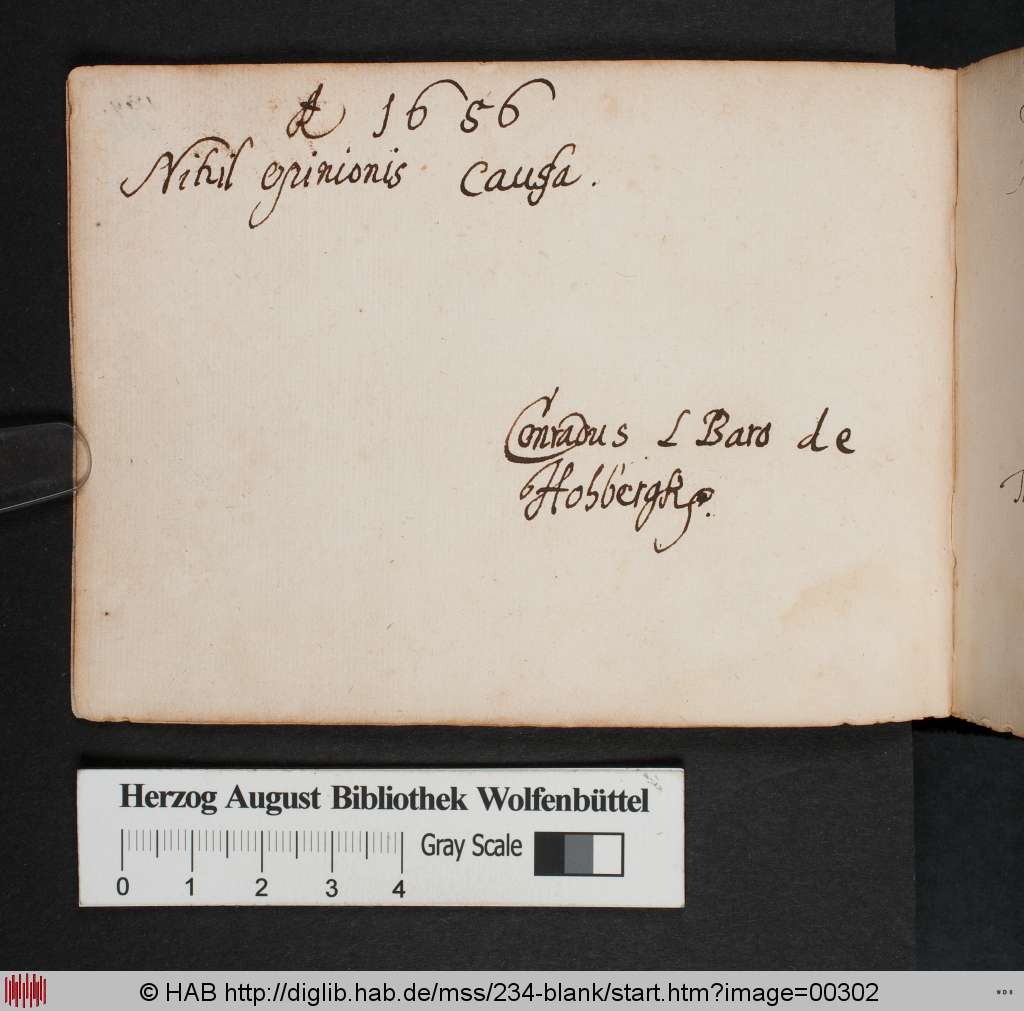 A 1656
Nihil opinionis causa.
Conradus L Baro de
Hohbergk.
Herzog August Bibliothek Wolfenbüttel
0 1 2 3 4
Gray Scale
© HAB http://diglib.hab.de/mss/234-blank/start.htm?image=00302